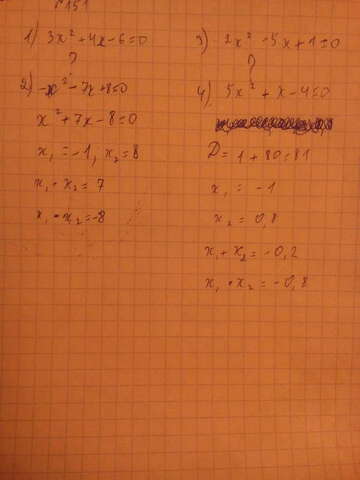 №151
1) 3x² + 4x - 6 = 0
?
2) -x² - 7x + 8 = 0
x² + 7x - 8 = 0
x₁ = -1, x₂ = 8
x₁ + x₂ = 7
x₁ • x₂ = -8
3) 2x² - 5x + 1 = 0
?
4) 5x² + x - 4 = 0
D = 1 + 80 = 81
x₁ = -1
x₂ = 0,8
x₁ + x₂ = -0,2
x₁ • x₂ = -0,8